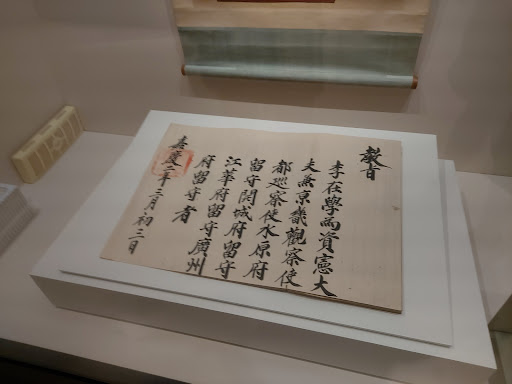 教旨
李在學爲資憲大
夫兼京畿觀察使
都巡察使水原府
留守開城府留守
江華府留守廣州
府留守者
嘉慶二年三月初三日